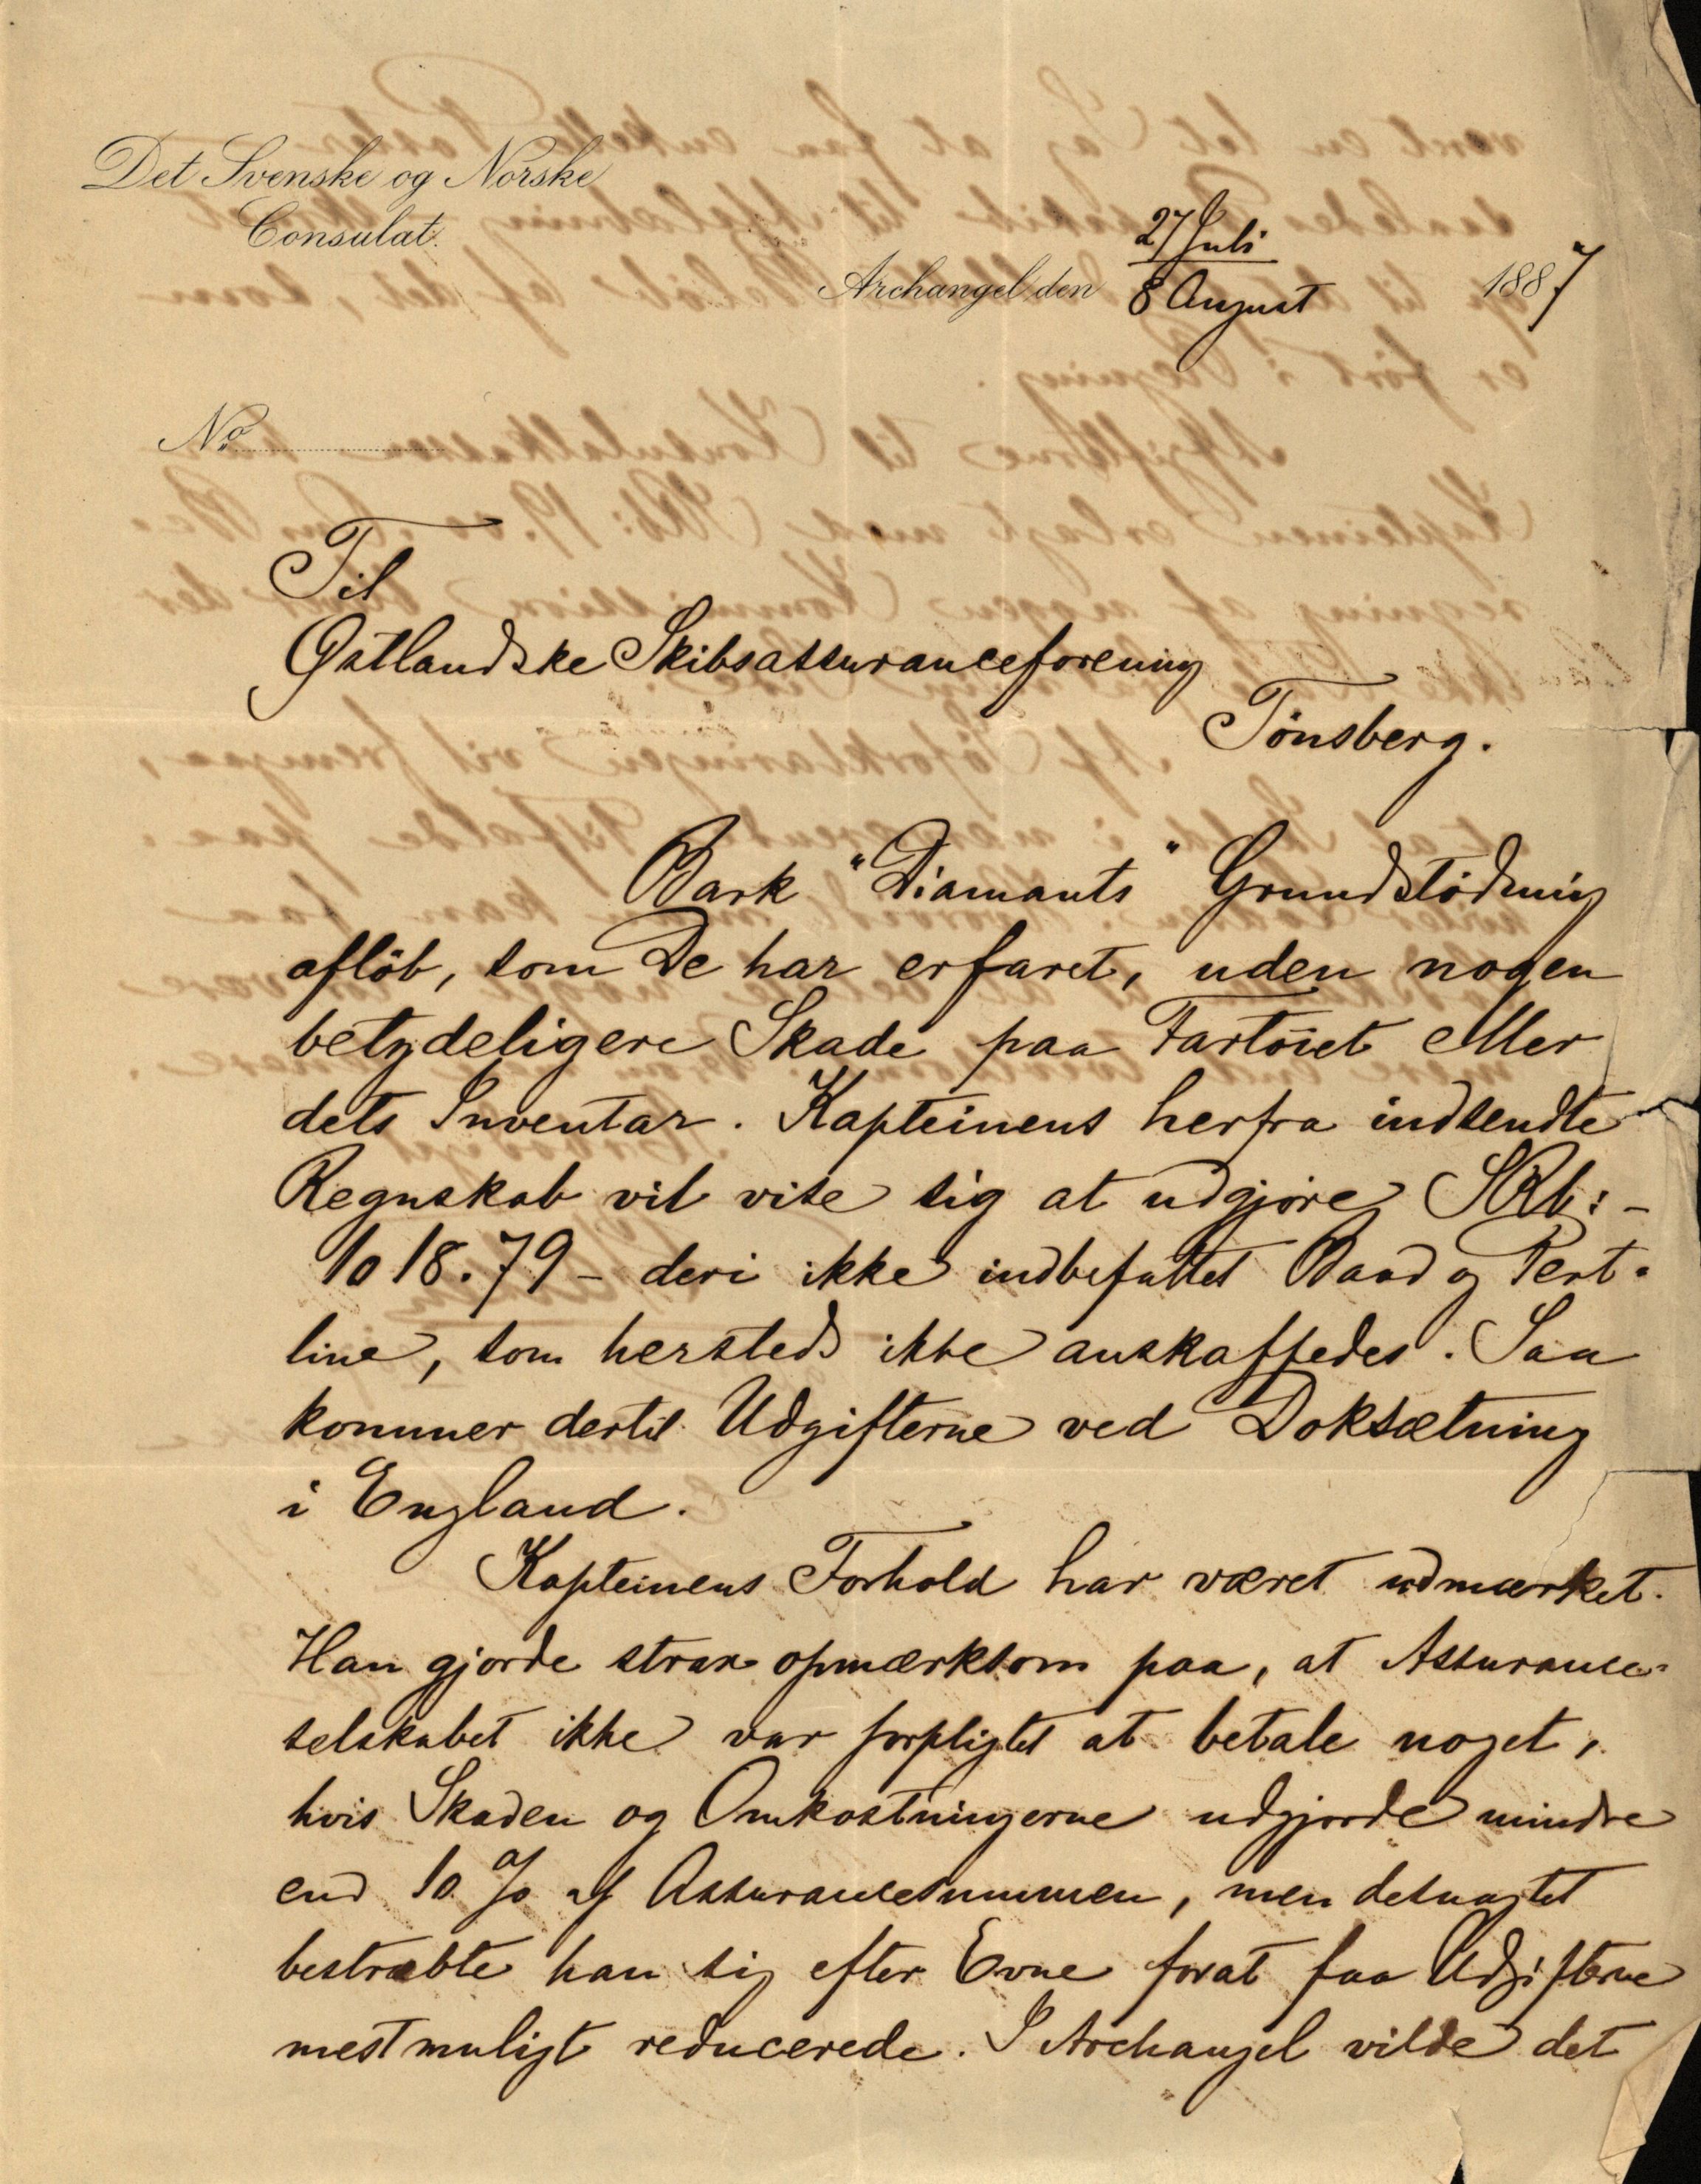 Det Svenske og Norske
Consulat.
Archangel den 27 Juli / 8 August 1887
No
Til
Østlandske Skibsassuranceforening
Tönsberg.
Bark "Diamants" Grundstödning
aflöb, som De har erfaret, uden nogen
betydeligere Skade paa Fartöiet eller
dets Inventar. Kapteinens herfra indsendte
Regnskab vil vise sig at udgjöre SRb:-
1018.79 - deri ikke indbefattet Baad og Pert-
line, som hersteds ikke anskaffedes. Saa
kommer dertil Udgifterne ved Doksætning
i England.
Kapteinens Forhold har været udmærket.
Han gjorde strax opmærksom paa, at Assurance-
selskabet ikke var forpligtet at betale noget,
hvis Skaden og Omkostningerne udgjorde mindre
end 10 % af Assurancesummen, men desuagtet
bestræbte han sig efter Evne forat faa Udgifterne
mestmuligt reducerede. I Archangel vilde det